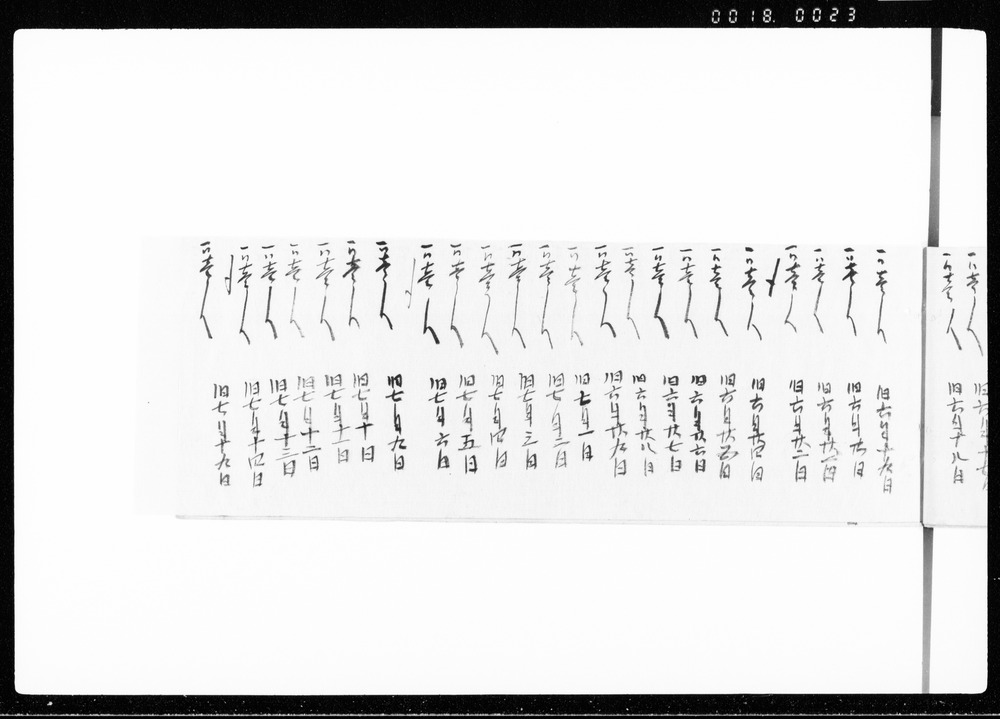 一〃壱人 旧六月十七日
一〃壱人 旧六月十八日
一〃壱人 旧六月十九日
一〃壱人 旧六月廿日
一〃壱人 旧六月廿一日
一〃壱人 旧六月廿二日
一〃壱人 旧六月廿四日
一〃壱人 旧六月廿五日
一〃壱人 旧六月廿六日
一〃壱人 旧六月廿七日
一〃壱人 旧六月廿八日
一〃壱人 旧六月廿九日
一〃壱人 旧七月一日
一〃壱人 旧七月二日
一〃壱人 旧七月三日
一〃壱人 旧七月四日
一〃壱人 旧七月五日
一〃壱人 旧七月六日
一〃壱人 旧七月九日
一〃壱人 旧七月十日
一〃壱人 旧七月十一日
一〃壱人 旧七月十二日
一〃壱人 旧七月十三日
一〃壱人 旧七月十四日
一〃壱人 旧七月十九日
0018. 0023